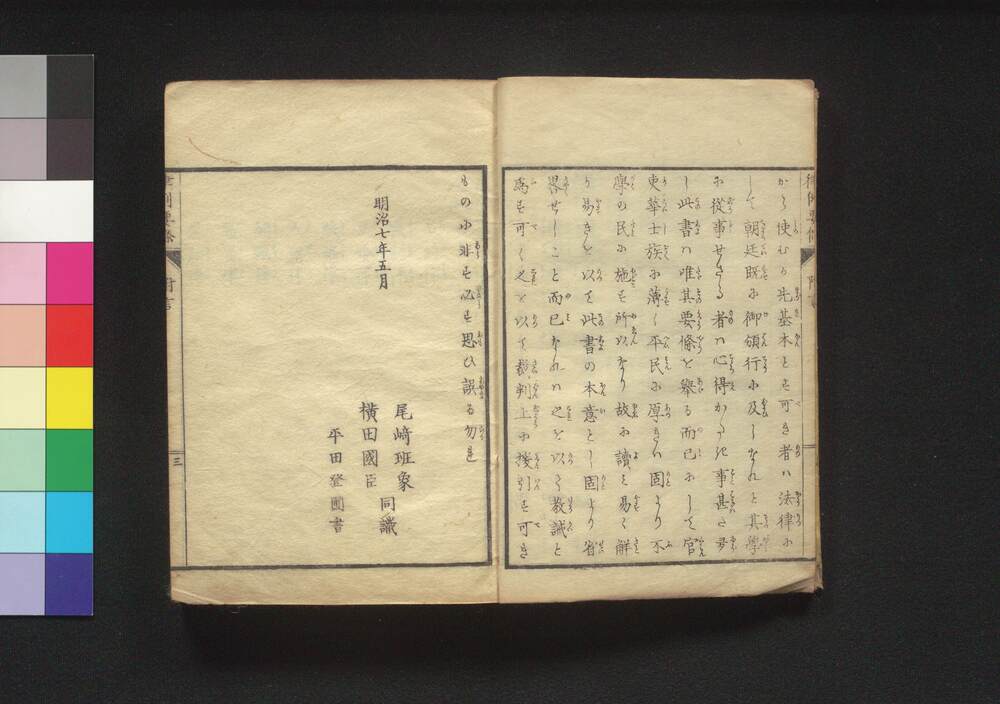 から使むる先基本とす可き者ハ法律に
して朝廷既に御頒行に及しなれと其學
に從事せさる者ハ心得かたき事甚た多
し此書ハ唯其要條を擧る而已にして官
吏華士族に薄く平民に厚きハ固より不
學の民に施す所以なり故に讀み易く解
り易きを以て此書の本意とし固より省
畧せしこと而已なれハ之を以て教誡と
為す可く之を以て裁判上に援引す可き
もの小非す必す思ひ誤る勿れ
明治七年五月
尾﨑班象
橫田國臣 同識
平田登圃書
附言
三